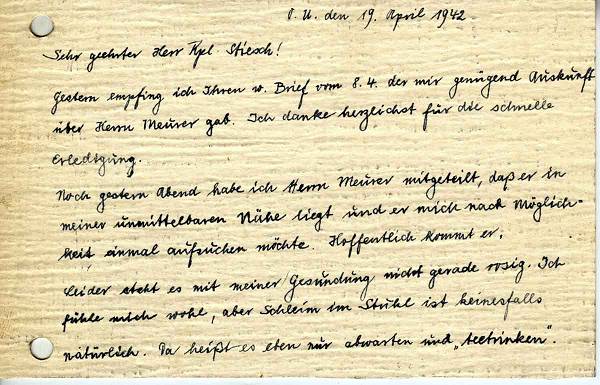 O. U. den 19. April 1942
Sehr geehrter Herr Kpl Stiesch!
Gestern empfing ich Ihren w. Brief vom 8.4. der mir genügend Auskunft
über Herrn Meurer gab. Ich danke herzlichst für die schnelle
Erledigung.
Noch gestern Abend habe ich Herrn Meurer mitgeteilt, daß er in
meiner unmittelbaren Nähe liegt und er mich nach Möglich-
keit einmal aufsuchen möchte. Hoffentlich kommt er.
Leider steht es mit meiner Gesundung nicht gerade rosig. Ich
fühle mich wohl, aber Schleim im Stuhl ist keinesfalls
natürlich. Da heißt es eben nur abwarten und „teetrinken".